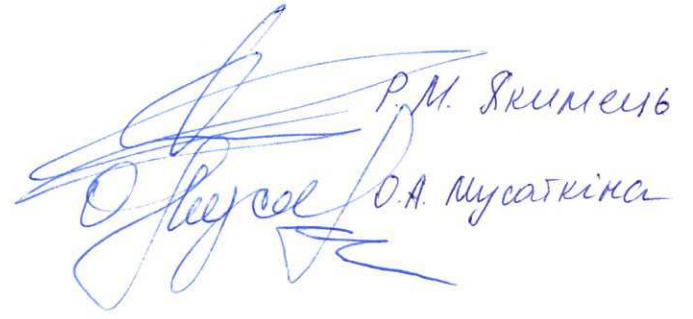 Р. М. Якимець
О. А. Мусаткіна